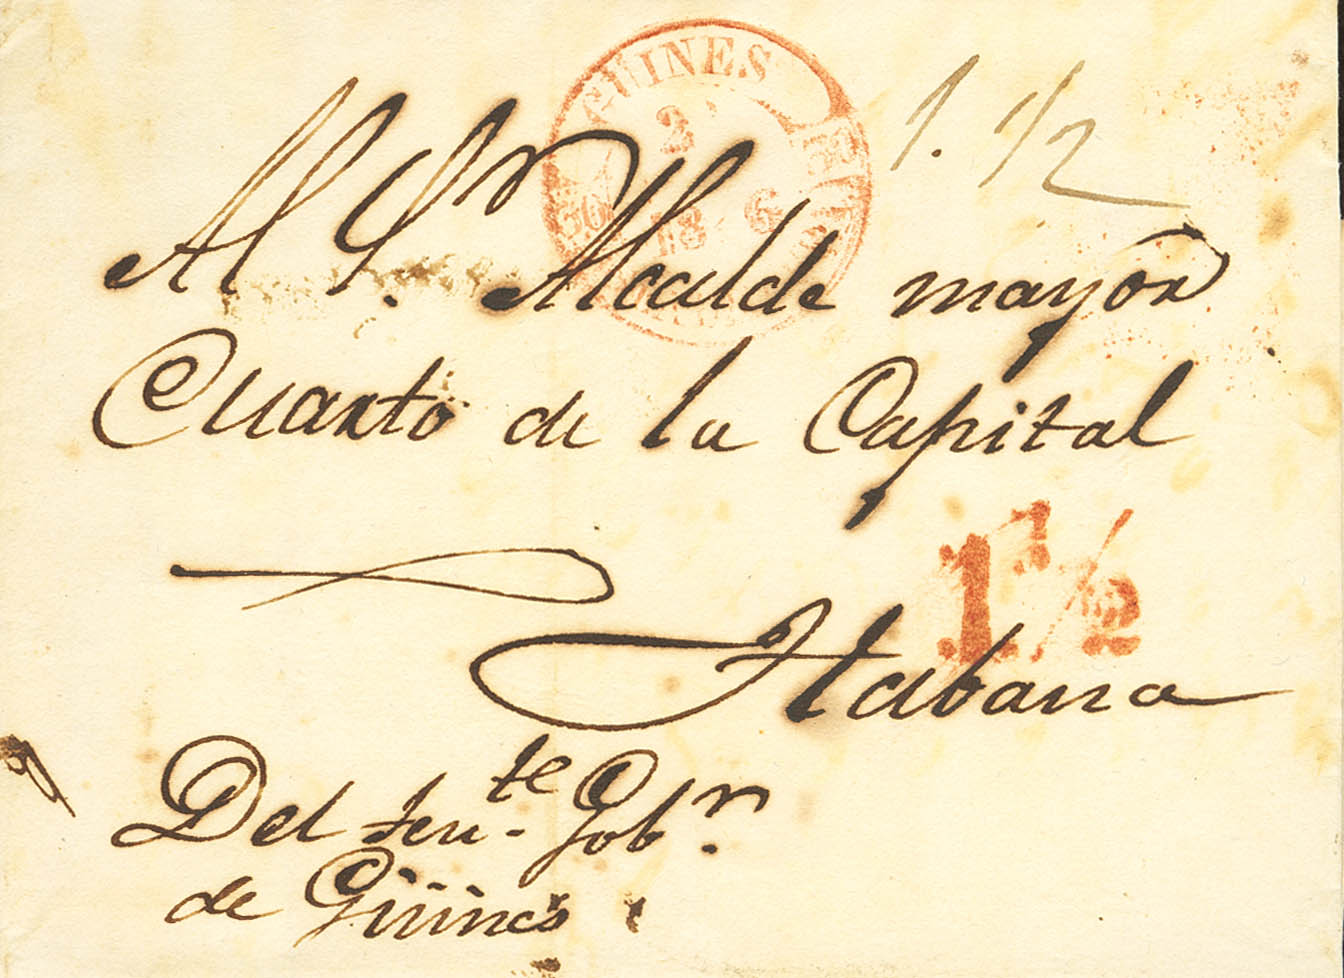 GUINES
2
1. 1/2
Al Sr. Alcalde mayor
Cuarto de la Capital
1 1/2
Habana
Del tente. Gobr.
de Güines